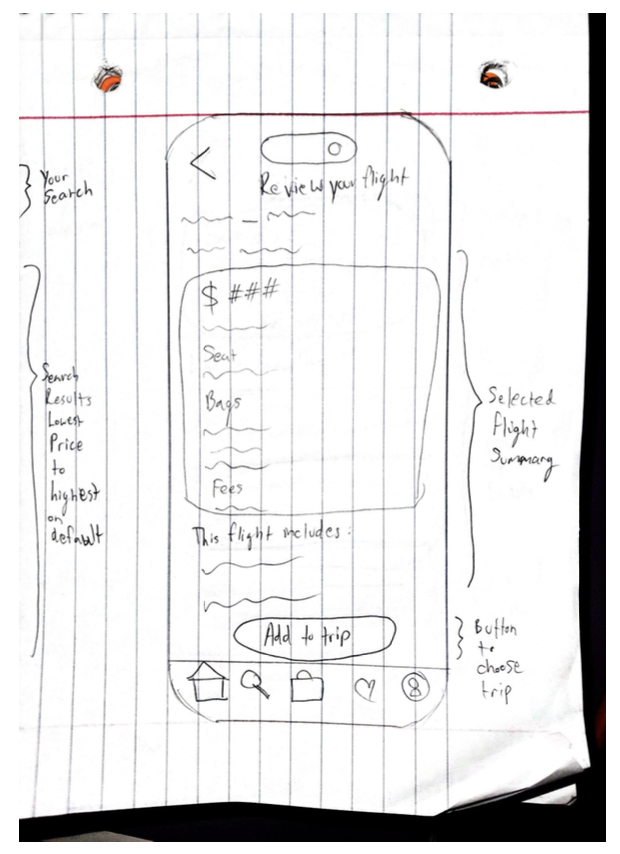 Your
Search
Search
Results
Lowest
Price
to
highest
on
default
Review your flight
$ ###
Seat
Bags
Fees
This flight includes:
Add to trip
Selected
flight
Summary
Button
to
choose
trip